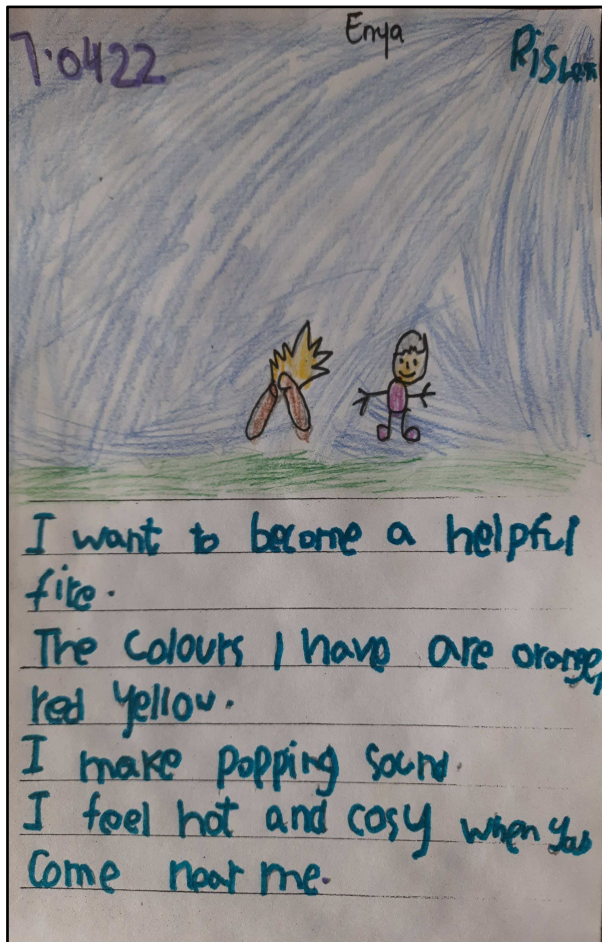 Enya
7.0422
I want to become a helpful
fire.
The colours I have are orange,
red yellow.
I make popping sound.
I feel hot and cosy when you
come near me.